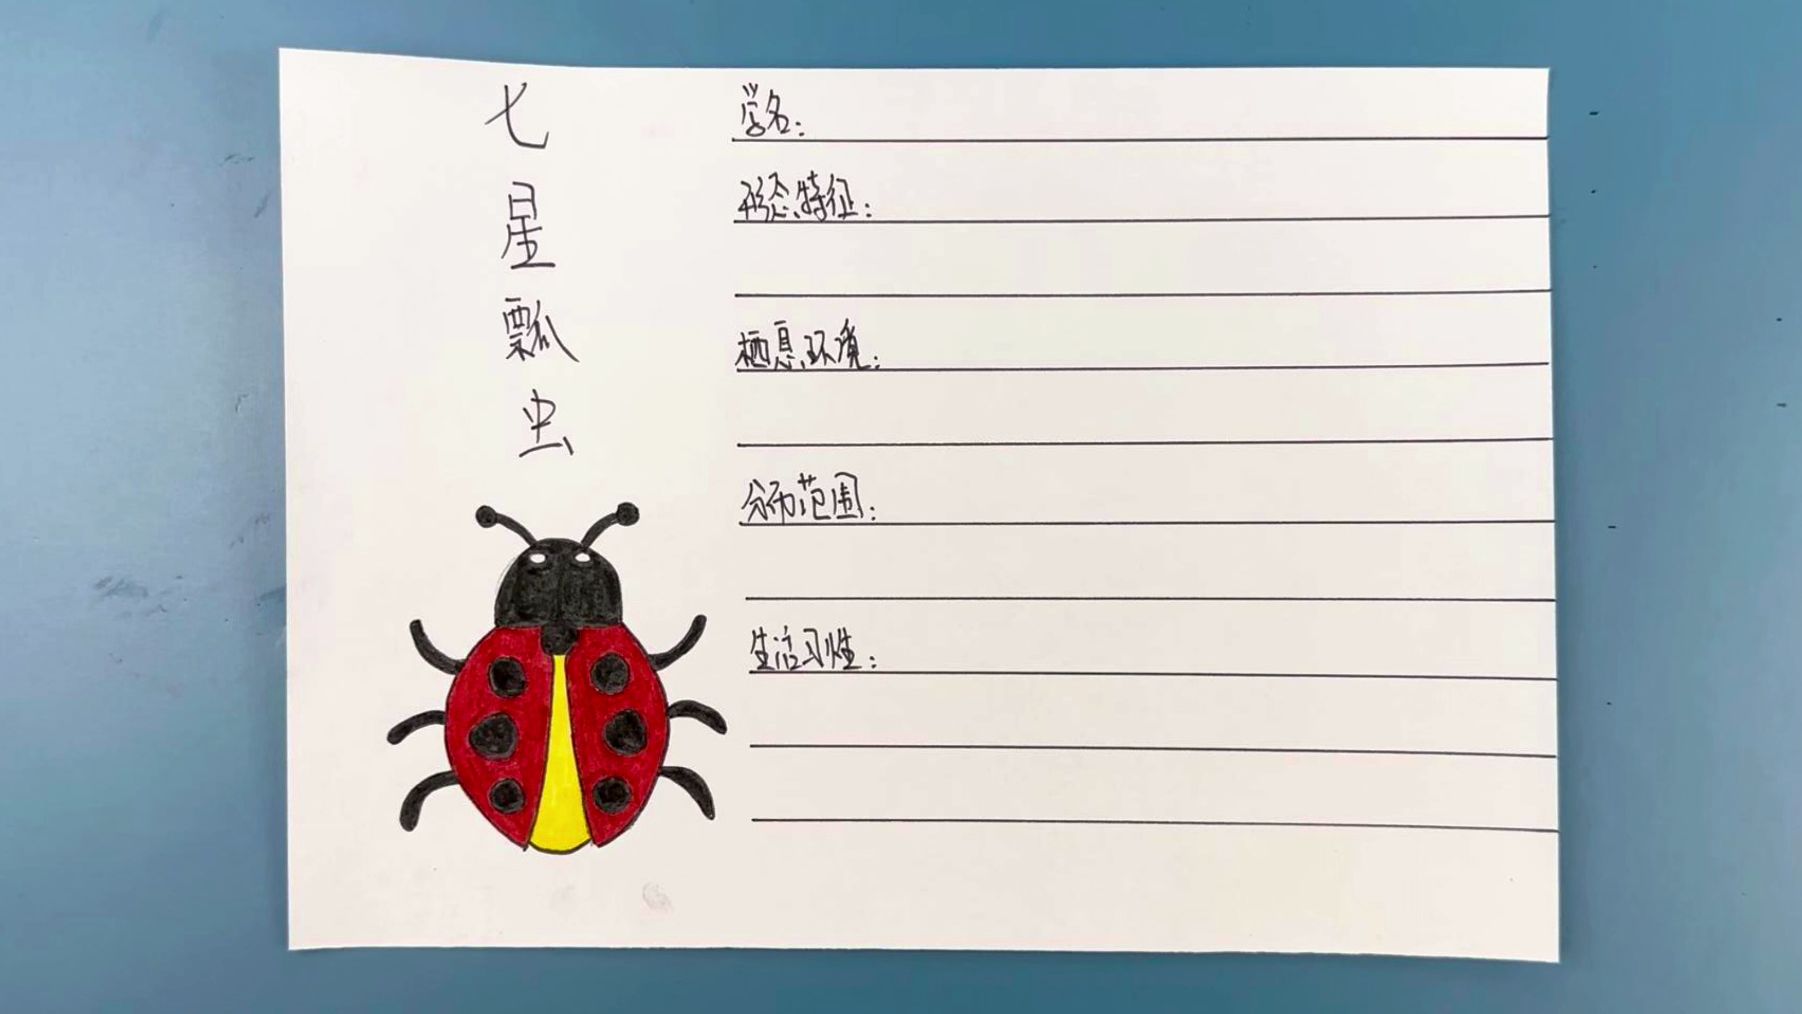 七星瓢虫
学名：
形态特征：
栖息环境：
分布范围：
生活习性：